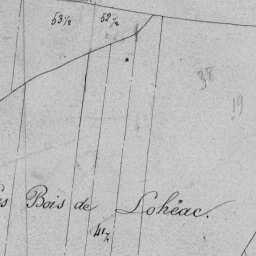 53 1/2 52 1/2
38
19
es Bois de Lohéac.
41 1/2